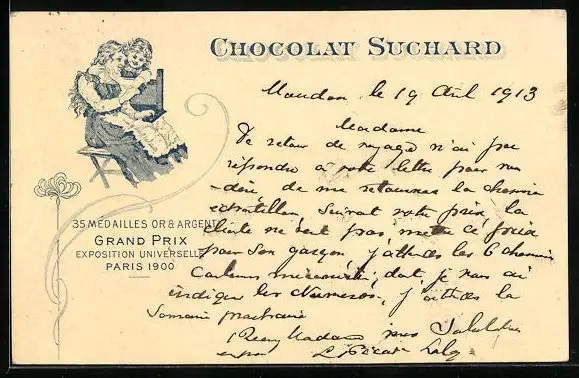 CHOCOLAT SUCHARD
35 MEDAILLES OR & ARGENT
GRAND PRIX
EXPOSITION UNIVERSELLE
PARIS 1900
le 19 Avril 1913
Madame
De retour de voyage n'ai pu
répondre à votre lettre pour
de me retourner la chemise
échantillon, Suivant votre prix, la
cliente ne veut pas mettre ce prix
pour son garçon, j'attends les 6 chemises
Couleurs dat je vous ai
indiquer les Numeros, j'attends la
Semaine prochaine
Recevez Madame mes Salut